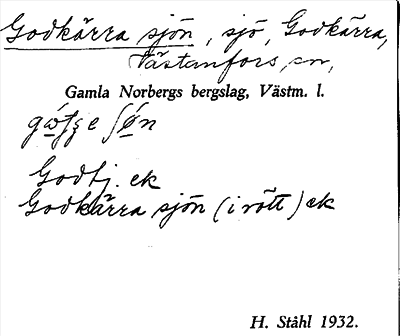 Godkärra sjön, sjö, Godkärra,
Västanfors sn,
Gamla Norbergs bergslag, Västm. l.
Godtj. ek
Godkärra sjön (i rött) ek
H. Ståhl 1932.